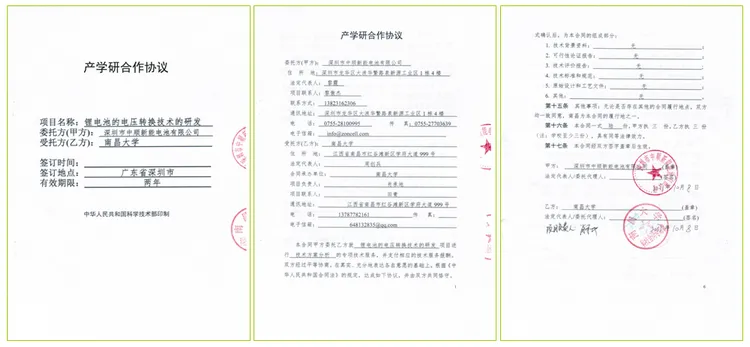 产学研合作协议
项目名称：锂电池的电压转换技术的研发
委托方(甲方)：深圳市中顺新能电池有限公司
受托方(乙方)：南昌大学
签订时间：
签订地点：广东省深圳市
有效期限：两年
中华人民共和国科学技术部印制
产学研合作协议
委托方(甲方)：深圳市中顺新能电池有限公司
住 所 地：深圳市龙华区大浪华繁路美新源工业区1栋4楼
法定代表人：
项目联系人：
联系方式：13823162306
通讯地址：深圳市龙华区大浪华繁路美新源工业区1栋4楼
电 话：0755-28100995 传 真：0755-27703639
电子信箱：info@zoncell.com
受托方(乙方)：南昌大学
住 所 地：江西省南昌市红谷滩新区学府大道999号
法定代表人：周创兵
合同承办单位：南昌大学
项目负责人：
项目联系人：
通讯地址：江西省南昌市红谷滩新区学府大道999号
电 话：13787782161 传 真：
电子信箱：648132835@qq.com
本合同甲方委托乙方就 锂电池的电压转换技术的研发 项目进
行 技术方案分析 的专项技术服务，并支付相应的技术服务报酬。
双方经过平等协商，在真实、充分地表达各自意愿的基础上，根据《中
华人民共和国合同法》的规定，达成如下协议，并由双方共同恪守。
1
式确认后，为本合同的组成部分：
1. 技术背景资料：无；
2. 可行性论证报告：无；
3. 技术评价报告：无；
4. 技术标准和规范：无；
5. 原始设计和工艺文件：无；
6. 其他：无。
第十五条 其他事项：无论是否存在其他的合同履行地点，双方
动一致同意，南昌为本合同的履行地之一。
第十六条 本合同一式 陆 份，甲方执 三 份，乙方执 三 份
(注：学校至少三份)，具有同等法律效力。
第十七条 本合同经双方签字盖章后生效。
甲方：深圳市中顺新能电池有限公司(盖章)
法定代表人/委托代理人：(签名)
10月8日
乙方：南昌大学(盖章)
法定代表人/委托代理人：(签名)
10月8日